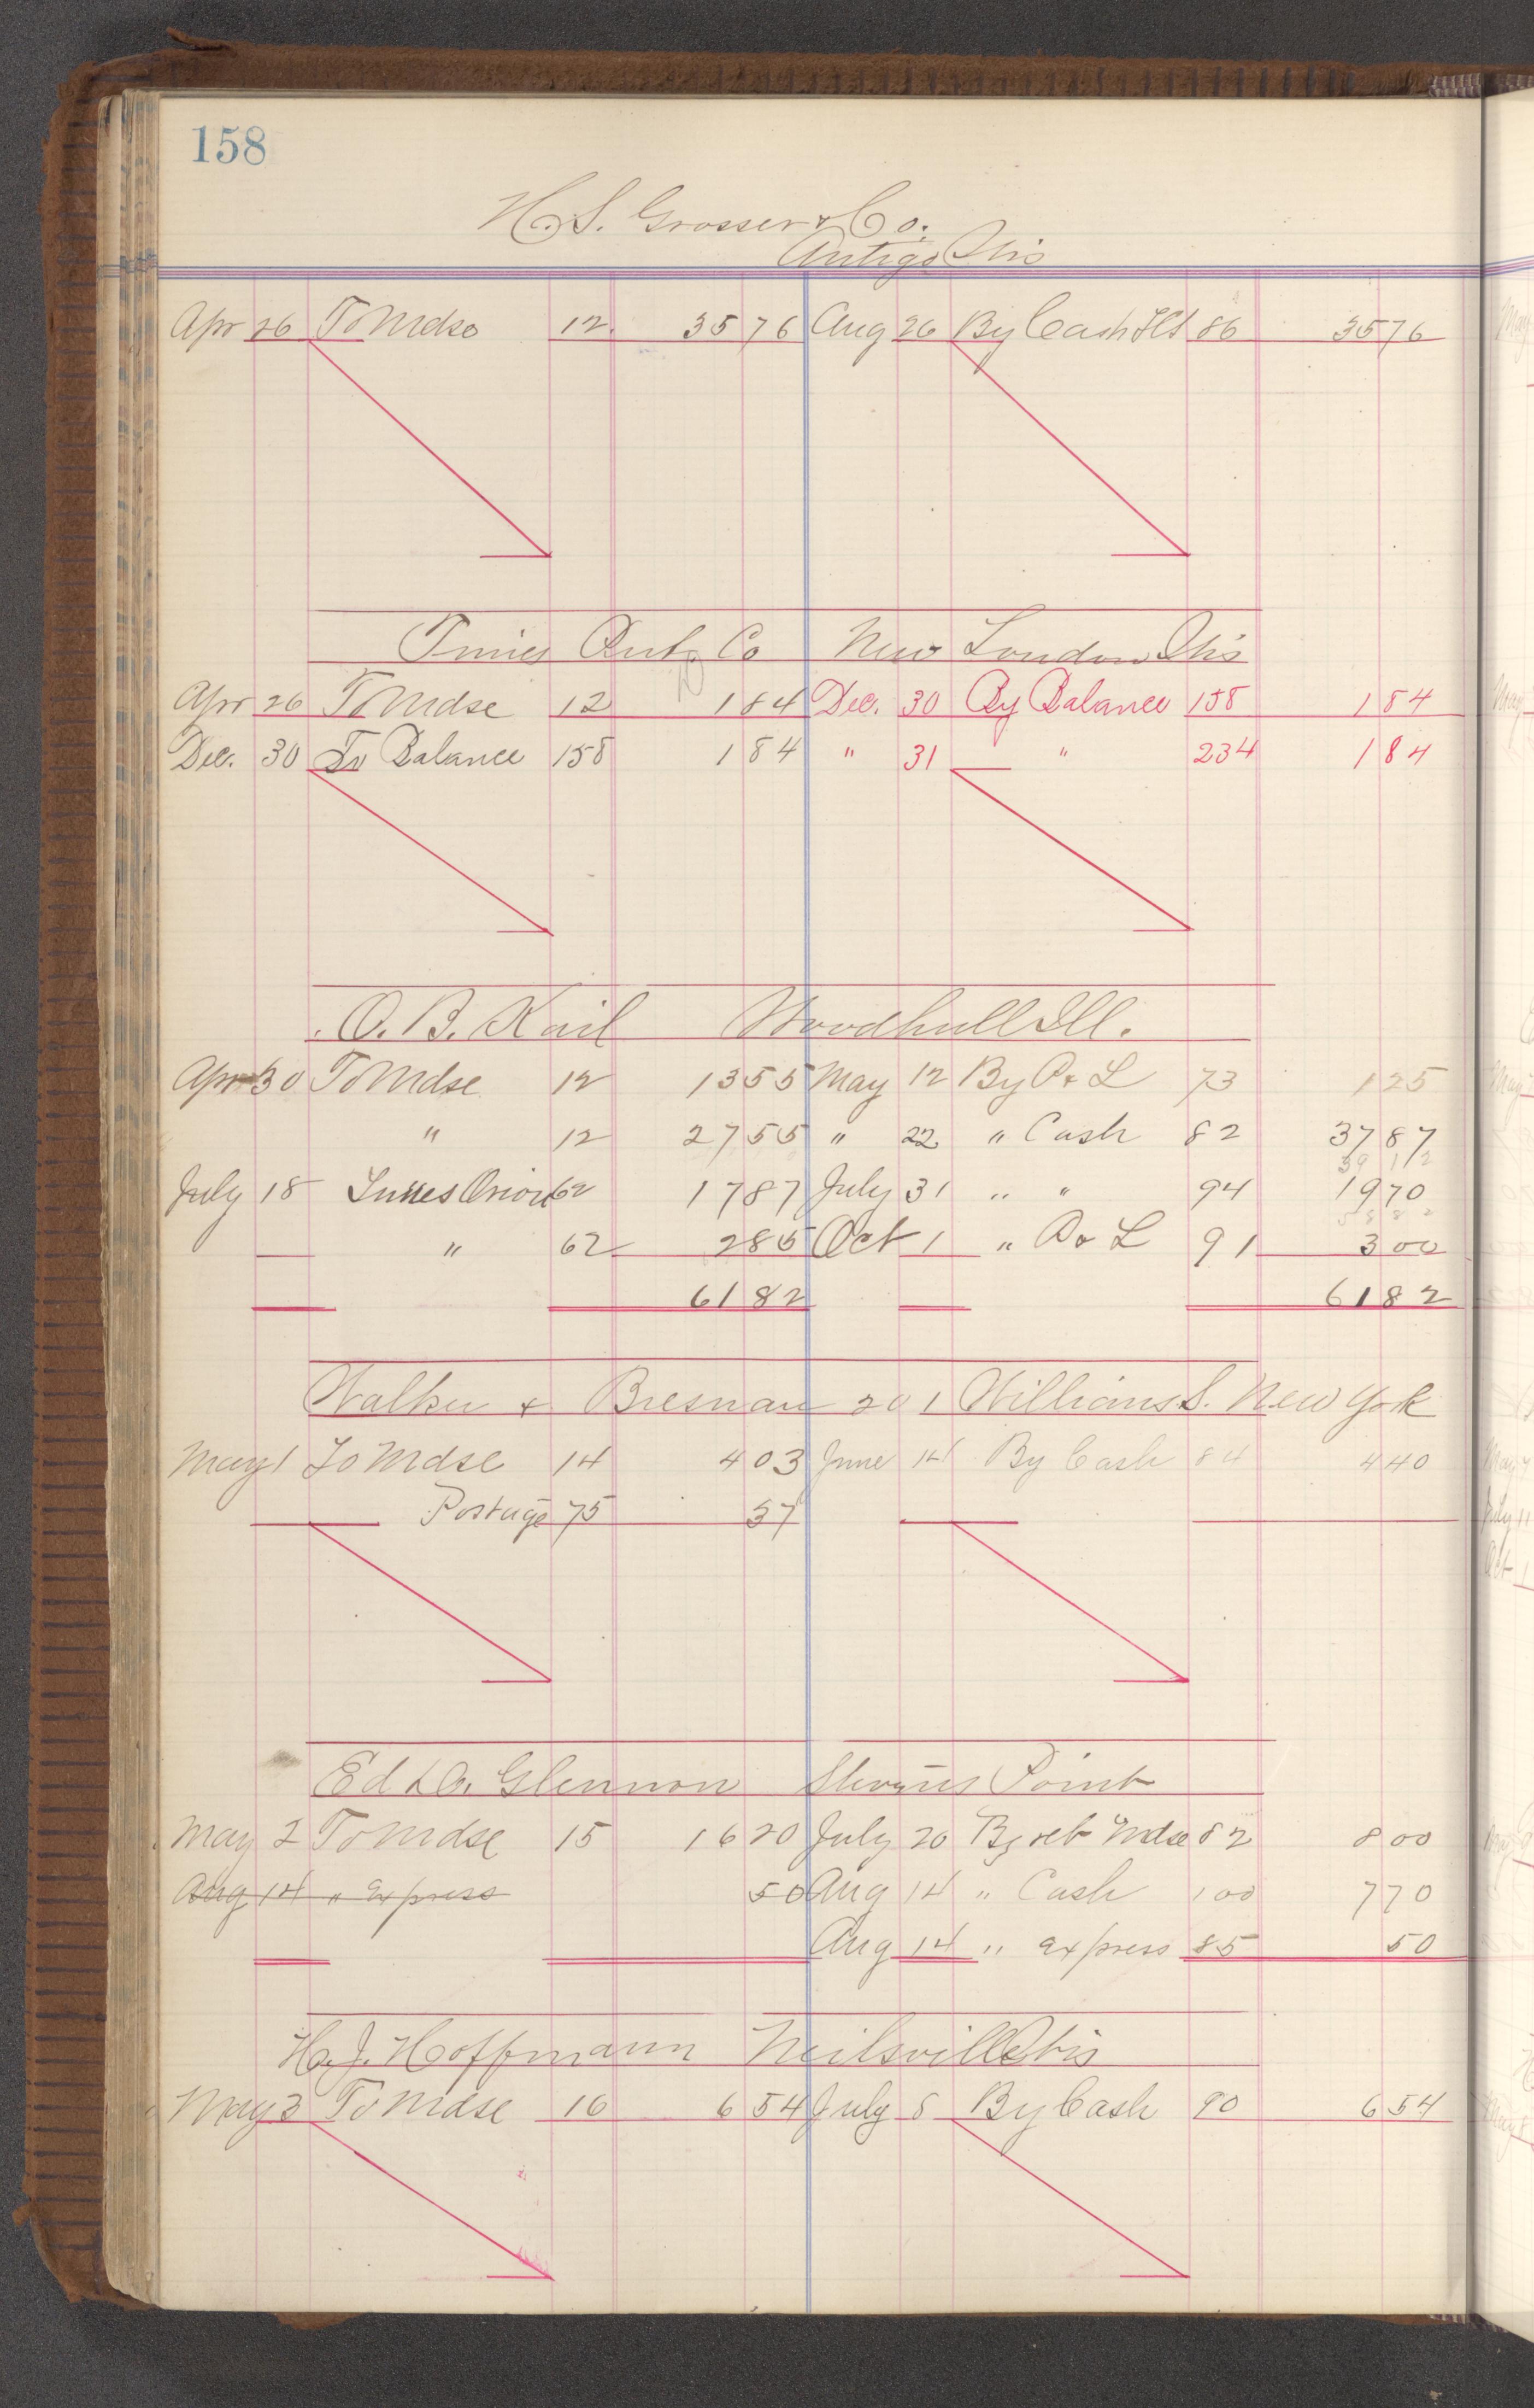 158
H. S. Grosser & Co.
Antigo Wis
Apr 26 To Mdse 12 35 76 Aug 26 By Cash 86 35 76
Times Co New London Wis
Apr 26 To Mdse 12 1 84 Dec. 30 By Balance 158 1 84
Dec. 30 To Balance 158 1 84 " 31 " 234 1 84
O. B. Kail Woodhull Ill.
Apr 30 To Mdse 12 13 55 May 12 By P & L 73 1 25
" 12 27 55 " 22 " Cash 82 37 87
39 12
July 18 Orion 62 17 87 July 31 " " 94 19 70
58 82
" 62 2 85 Oct 1 " P & L 91 3 00
61 82 61 82
Walker & Bresnan 201 Williams S. New York
May 1 To Mdse 14 4 03 June 14 By Cash 84 4 40
Postage 75 37
Ed D. Glennon Stevens Point
May 2 To Mdse 15 16 20 July 20 By ret Mdse 82 8 00
Aug 14 " Express 50 Aug 14 " Cash 100 7 70
Aug 14 " Express 85 50
H. J. Hoffmann Neilsville Wis
May 3 To Mdse 16 6 54 July 8 By Cash 90 6 54